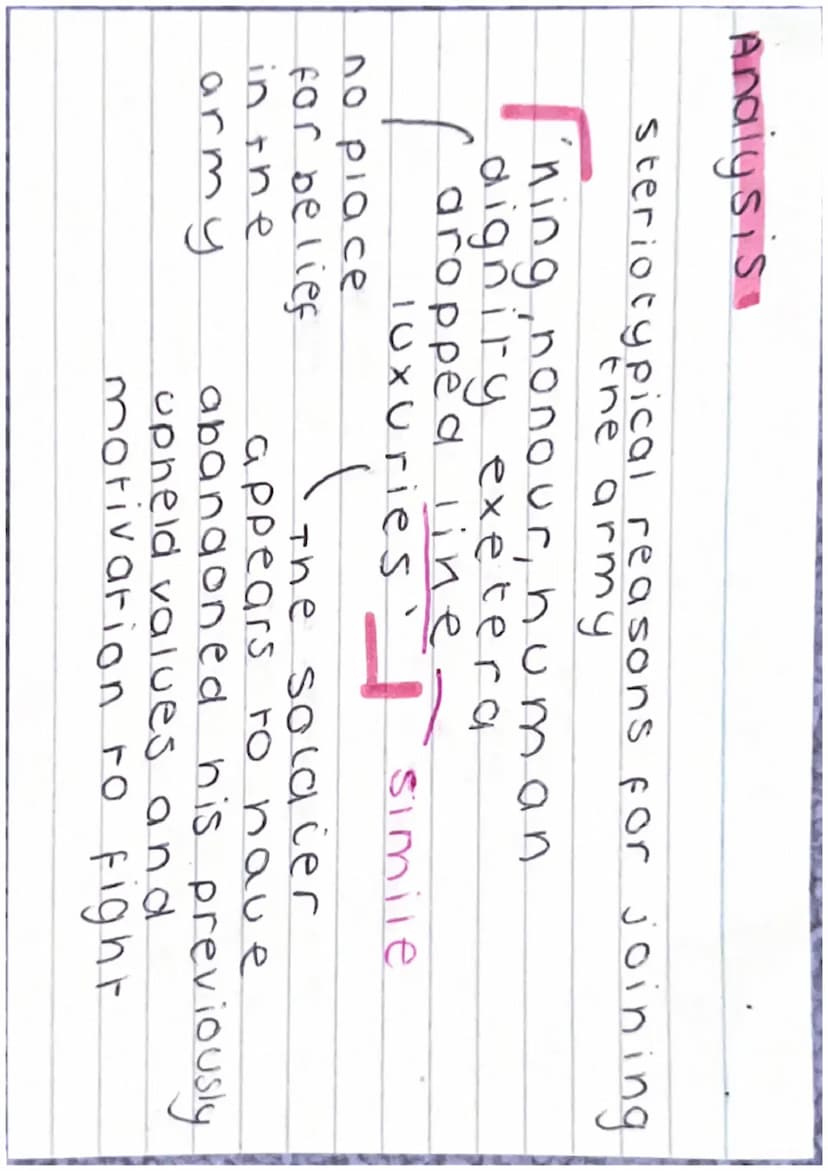 Analysis.
steriotypical reasons for joining
the army
'king, honour, human
dignity exetera
dropped like
luxuries'
simile
no place
for belief
in the
army
The soldier
appears to have
abandoned his previously
upheld values and
motivation to fight